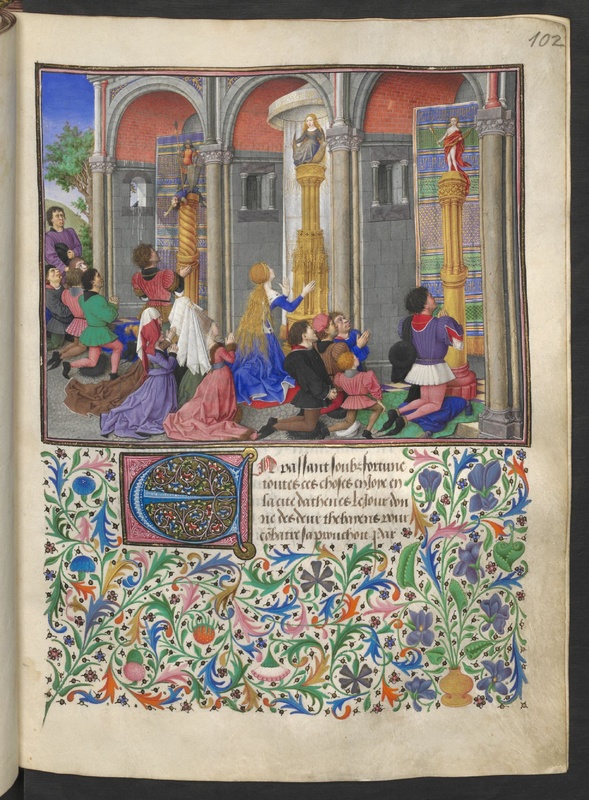 102
EN passant soubz fortune
toutes ces choses en joye en
la cite dathenes Le jour don
ne des deux thebayens pour
cōbatre sapprouchoit Par